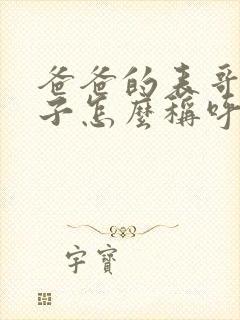 爸爸的表哥
子怎麼稱呼
字寶